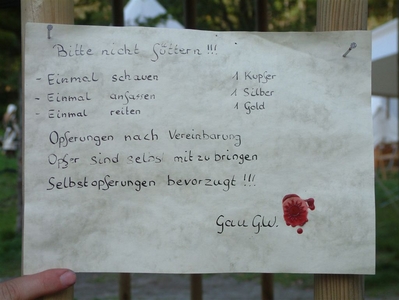 Bitte nicht füttern !!!
- Einmal schauen 1 Kupfer
- Einmal anfassen 1 Silber
- Einmal reiten 1 Gold
Opferungen nach Vereinbarung
Opfer sind selbst mitzubringen
Selbstopferungen bevorzugt !!!
Gau GW.